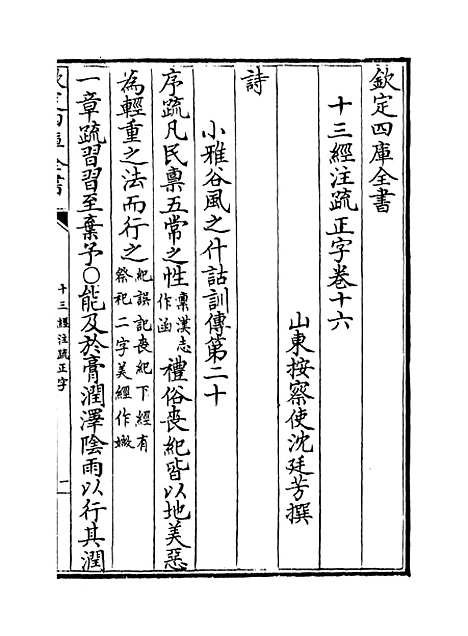 欽定四庫全書
十三經注疏正字卷十六
山東按察使沈廷芳撰
詩
小雅谷風之什詁訓傳第二十
序疏凡民禀五常之性禀漢志作函禮俗喪紀皆以地美惡
為輕重之法而行之紀誤記喪紀下經有祭祀二字美經作媺
一章疏習習至棄予○能及於膏潤澤陰雨以行其潤
欽定四庫全書
十三經注疏正字